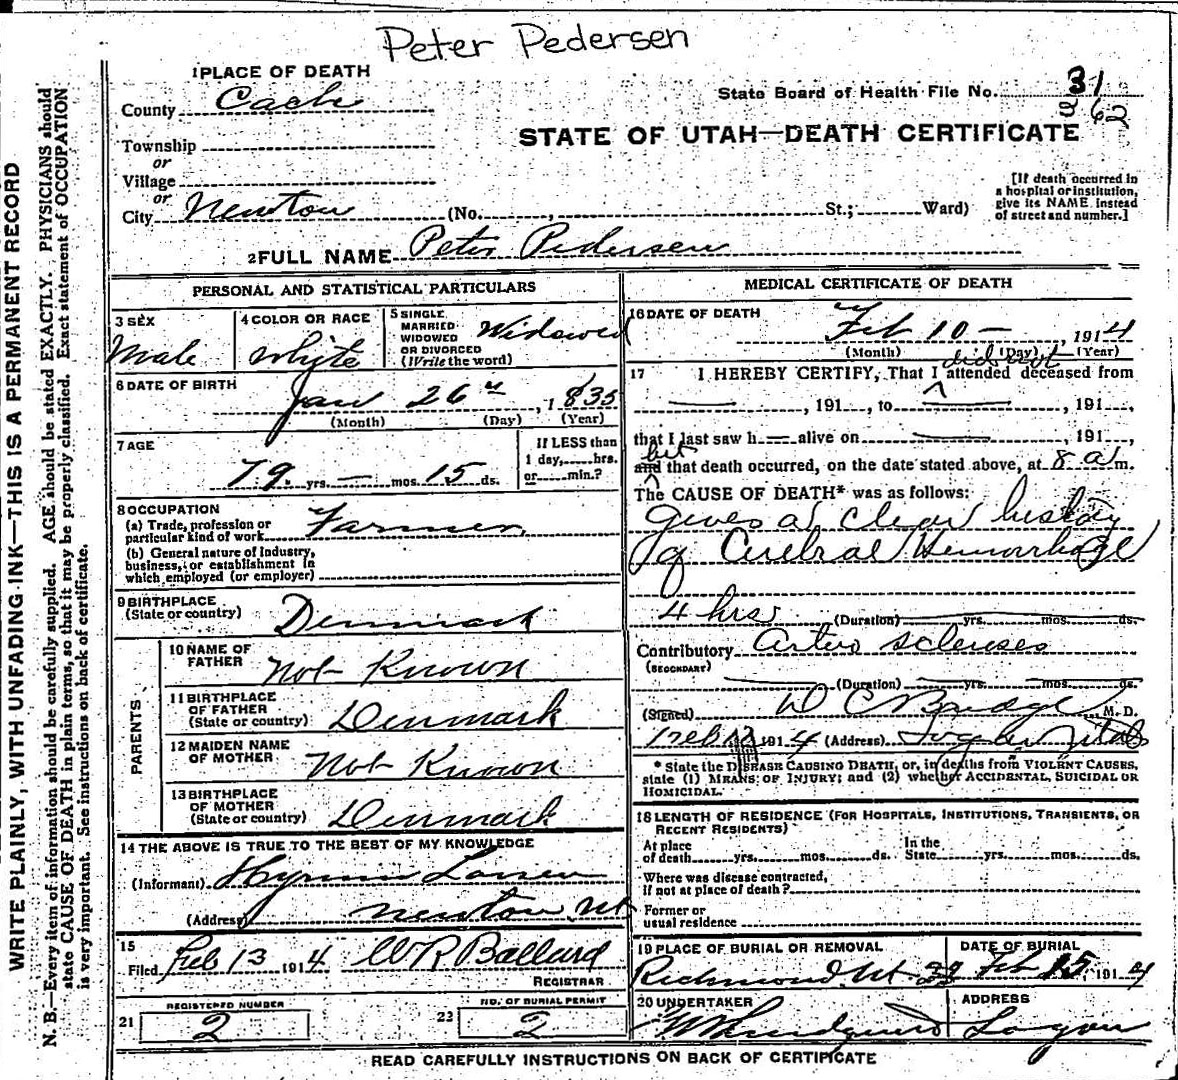 Peter Pedersen
1 PLACE OF DEATH
County Cache
State Board of Health File No. 31
62
STATE OF UTAH—DEATH CERTIFICATE
Township
or
Village
or
City Newton (No. , St.; Ward)
[If death occurred in
a hospital or institution,
give its NAME instead
of street and number.]
2 FULL NAME Peter Pedersen
PERSONAL AND STATISTICAL PARTICULARS
3 SEX
Male
4 COLOR OR RACE
White
5 SINGLE,
MARRIED
WIDOWED
OR DIVORCED
(Write the word)
Widowed
6 DATE OF BIRTH
Jan 26 , 1835
(Month) (Day) (Year)
7 AGE
79 yrs. — mos. 15 ds.
If LESS than
1 day, hrs.
or min.?
8 OCCUPATION
(a) Trade, profession or
particular kind of work Farmer
(b) General nature of industry,
business, or establishment in
which employed (or employer)
9 BIRTHPLACE
(State or country) Denmark
PARENTS
10 NAME OF
FATHER Not Known
11 BIRTHPLACE
OF FATHER
(State or country) Denmark
12 MAIDEN NAME
OF MOTHER Not Known
13 BIRTHPLACE
OF MOTHER
(State or country) Denmark
14 THE ABOVE IS TRUE TO THE BEST OF MY KNOWLEDGE
(Informant) Hyrum Larsen
(Address) Newton, Ut
15
Filed Feb 13 1914 W R Ballard
REGISTRAR
REGISTERED NUMBER
21 2
NO. OF BURIAL PERMIT
22 2
MEDICAL CERTIFICATE OF DEATH
16 DATE OF DEATH
Feb 10 — , 1914
(Month) (Day) (Year)
did not
17 I HEREBY CERTIFY, That I attended deceased from
, 191 , to , 191 ,
that I last saw h — alive on , 191 ,
but
and that death occurred, on the date stated above, at 8 a m.
The CAUSE OF DEATH* was as follows:
gives a clear history
of Cerebral Hemorrhage
4 hrs (Duration) yrs. mos. ds.
Contributory Arterio sclerosis
(SECONDARY)
(Duration) yrs. mos. ds.
(Signed) W C M.D.
Feb 1914 (Address) Utah
* State the DISEASE CAUSING DEATH, or, in deaths from VIOLENT CAUSES,
state (1) MEANS OF INJURY; and (2) whether ACCIDENTAL, SUICIDAL OR
HOMICIDAL.
18 LENGTH OF RESIDENCE (FOR HOSPITALS, INSTITUTIONS, TRANSIENTS, OR
RECENT RESIDENTS)
At place
of death yrs. mos. ds.
In the
State yrs. mos. ds.
Where was disease contracted,
If not at place of death?
Former or
usual residence
19 PLACE OF BURIAL OR REMOVAL
Richmond, Ut.
DATE OF BURIAL
Feb 15 1914
20 UNDERTAKER
ADDRESS
Logan
READ CAREFULLY INSTRUCTIONS ON BACK OF CERTIFICATE
WRITE PLAINLY, WITH UNFADING INK—THIS IS A PERMANENT RECORD
N. B.—Every item of information should be carefully supplied. AGE should be stated EXACTLY. PHYSICIANS should
state CAUSE OF DEATH in plain terms, so that it may be properly classified. Exact statement of OCCUPATION
is very important. See instructions on back of certificate.